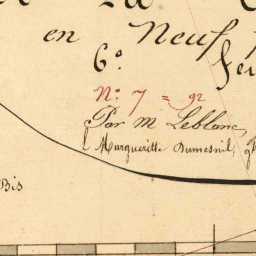 en Neuf
6°
N° 7 = 92
Par m Leblanc
Marqueritte Dumesnil,
Bis